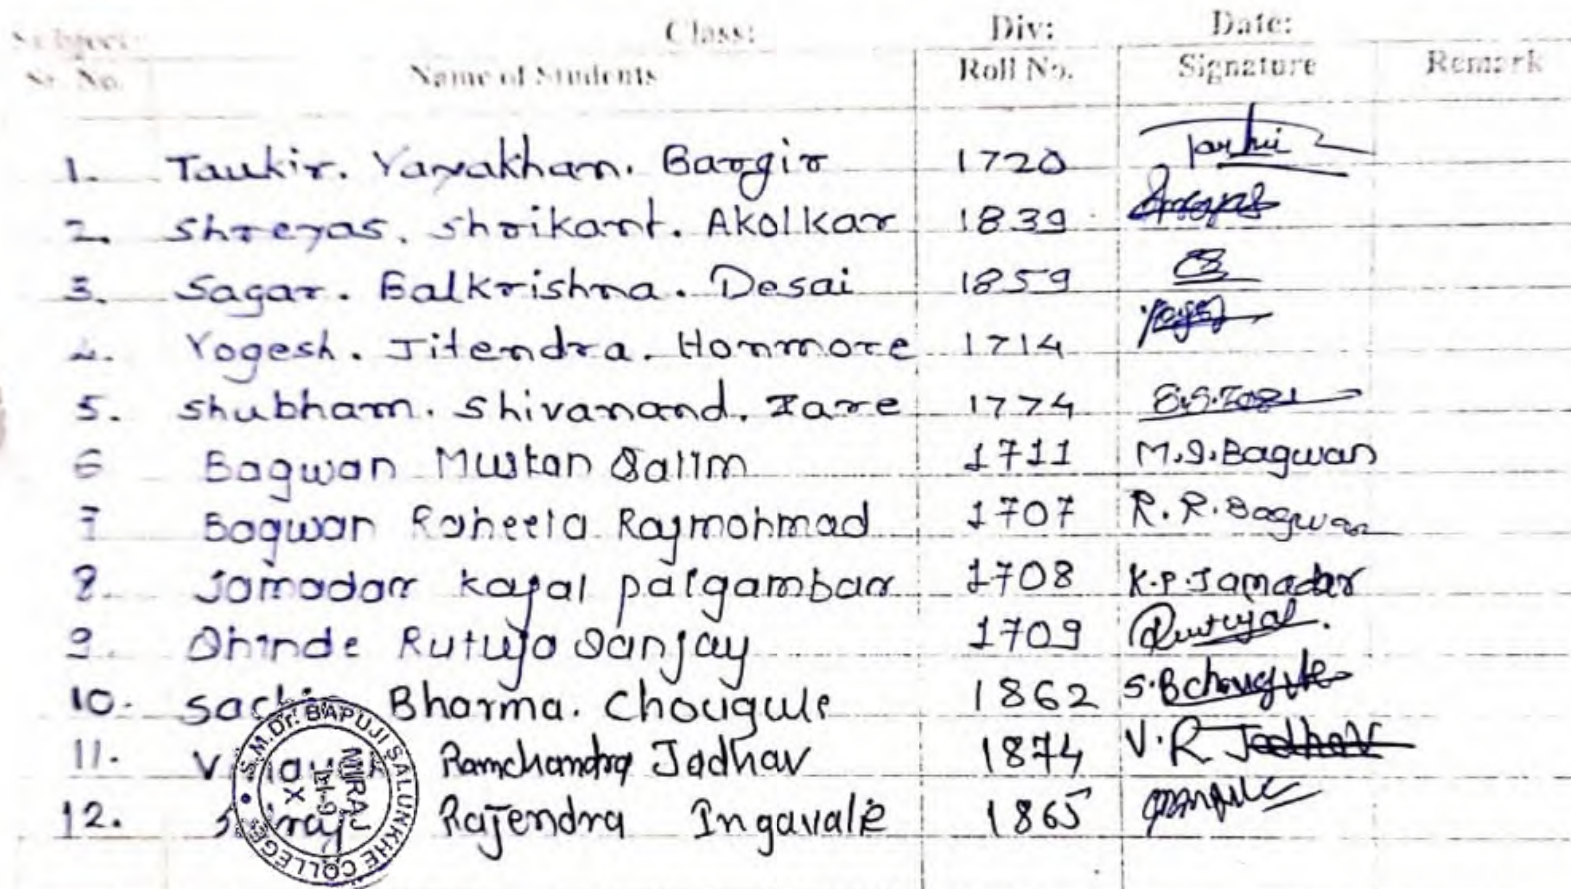 Subject: Class: Div: Date:
Sr. No. Name of Students Roll No. Signature Remark
1. Taukir. Yayakhan. Bargir 1720
2. Shreyas. Shrikant. Akolkar 1839
3. Sagar. Balkrishna. Desai 1859
4. Yogesh. Jitendra. Honmore 1714
5. Shubham. Shivanand. Zare 1774
6 Bagwan Muskan Salim 1711 M.S.Bagwan
7 Bagwan Raheela Rajmohmad 1707 R.R.Bagwan
8 Jamadar Kajal paigambar 1708 K.P.Jamadar
9. Shinde Rutuja Sanjay 1709 Rutuja
10. Bharma. Chougule 1862 S.B chougule
11. Ramchandra Jadhav 1874 V.R Jadhav
12. Rajendra Ingavale 1865
S.M.Dr. BAPUJI SALUNKHE COLLEGE
MIRAJ